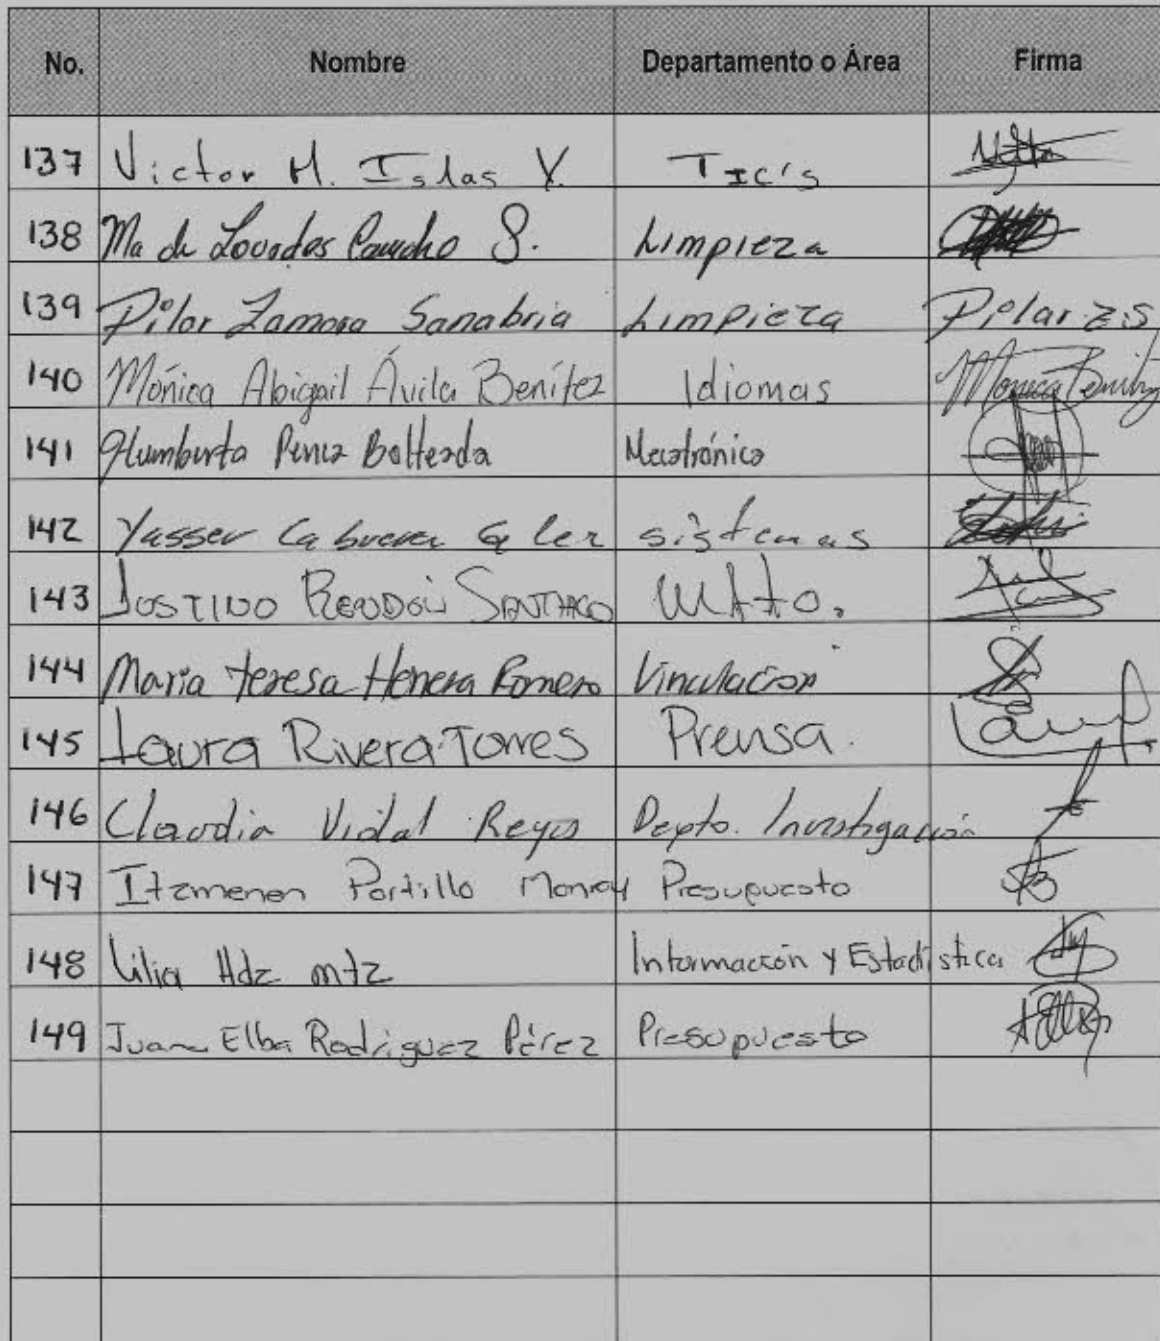 No. Nombre Departamento o Área Firma
137 Victor M. Islas V. TIC's
138 Ma de Lourdes Camcho S. Limpieza
139 Pilar Zamora Sanabria Limpieza Pilar Z.S
140 Mónica Abigail Ávila Benítez Idiomas Monica Benitez
141 Humberto Perez Mecatrónica
142 Yasser Cabrera sistemas
143 JUSTINO RENDÓN SANTIAGO Mtto.
144 Maria teresa Herrera Romero Vinculacion
145 Laura Rivera Torres Prensa.
146 Claudia Vidal Reyes Depto. Investigación
147 Portillo Monroy Presupuesto
148 Lilia Hdz mtz Información y Estadística
149 Juana Elba Rodriguez Pérez Presupuesto